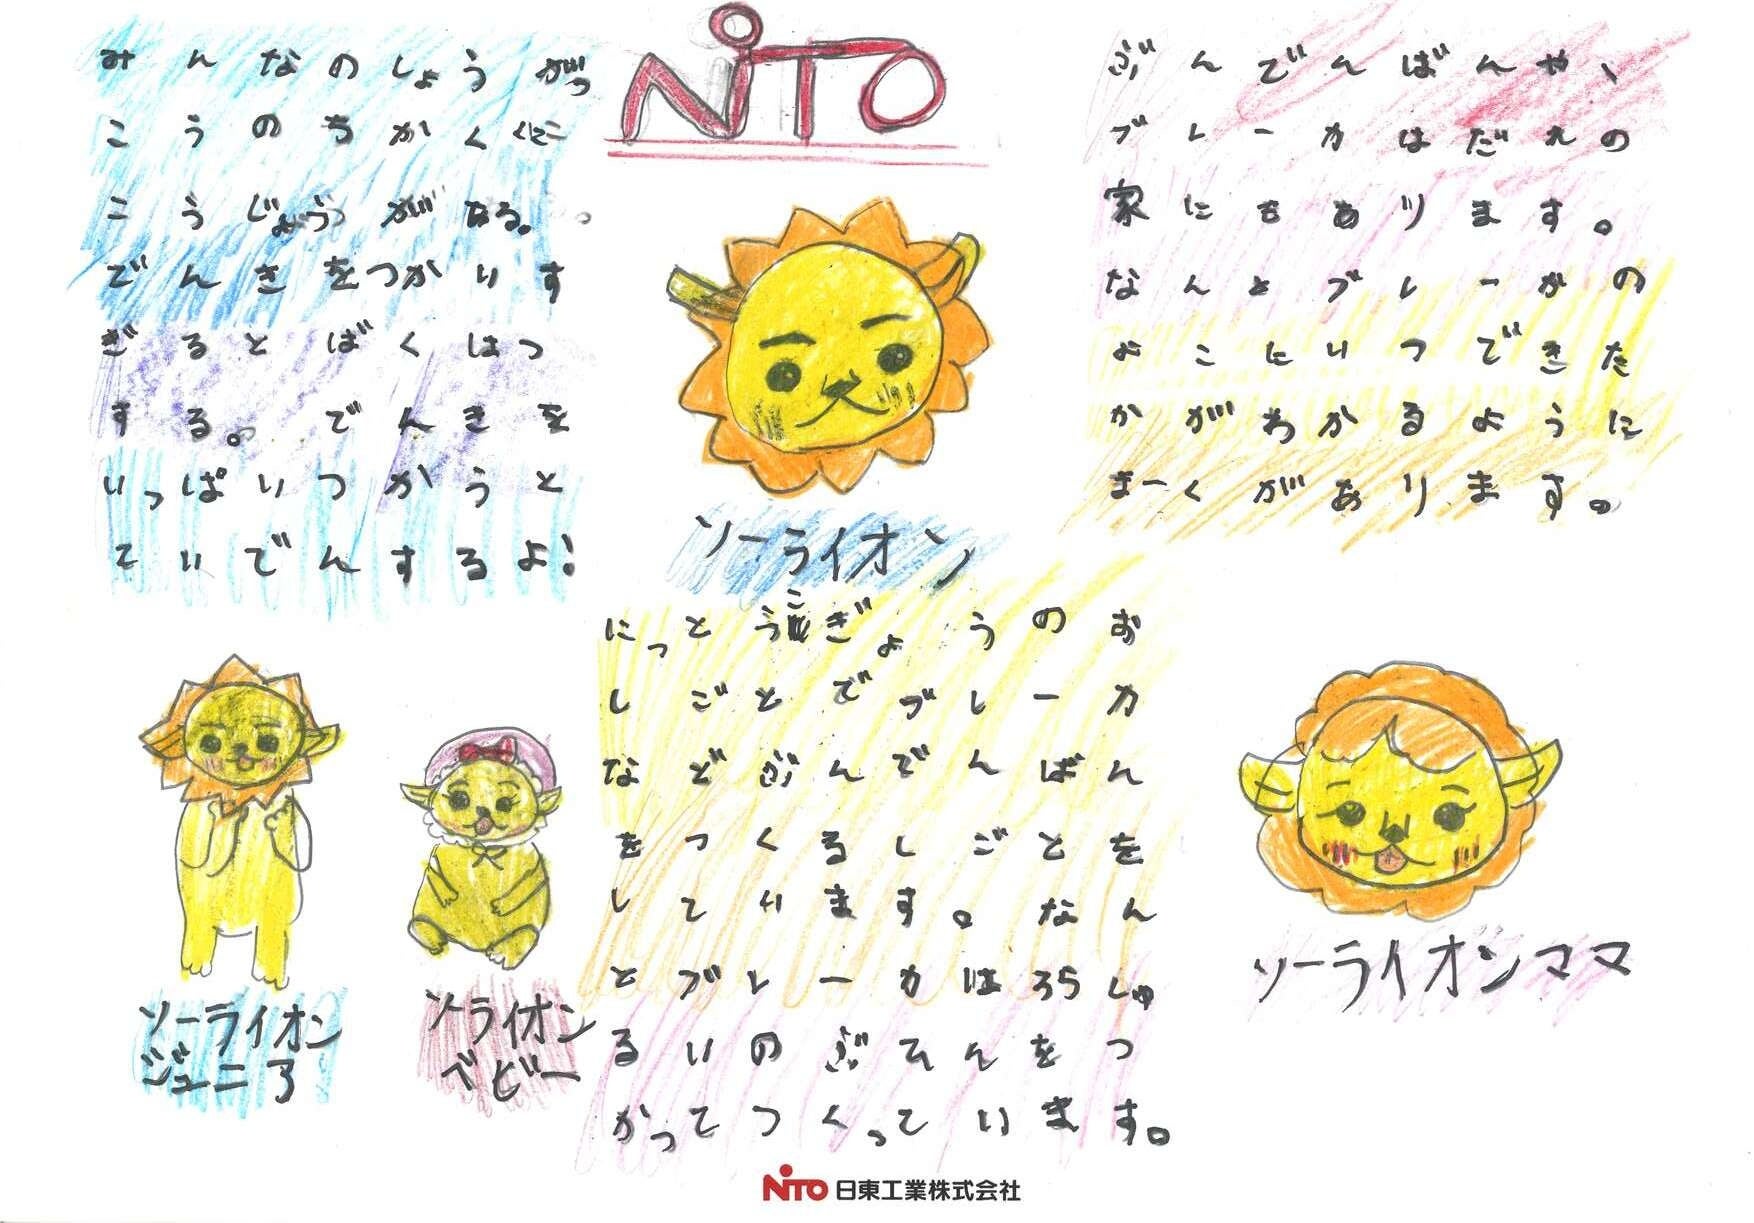 NiTO
みんなのしょうがっ
こうのちかくに
こうじょうがある。
でんきをつかいす
ぎるとばくはつ
する。でんきを
いっぱいつかうと
ていでんするよ!
ぶんでんばんや、
ブレーカはだれの
家にもあります。
なんとブレーカの
よこにいつできた
かがわかるように
まーくがあります。
ソーライオン
にっとうこぎょうのお
しごとでブレーカ
などぶんでんばん
をつくるしごとを
しています。なん
とブレーカは35しゅ
るいのぶひんをつ
かってつくっています。
ソーライオン
ジュニア
ソライオン
ベビー
ソーライオンママ
NiTO 日東工業株式会社